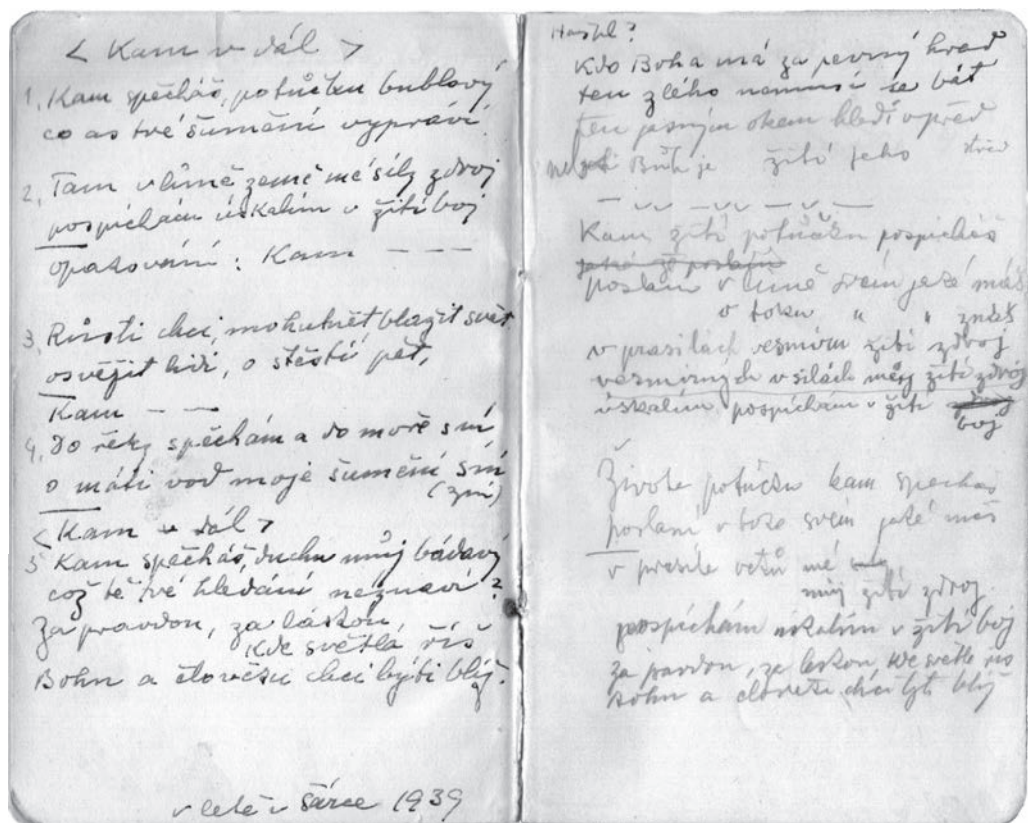 < Kam v dál >
1, Kam spěcháš, potůčku bublavý
co as tvé šumění vypráví
2, Tam v lůně země mé síly zdroj
pospíchám úskalím v žití boj
opakování: Kam - - -
3, Růsti chci, mohutnět blažit svět
osvěžit lidi, o štěstí pět,
Kam - -
4, Do řeky spěchám a do moře sní
o máti vod moje šumění sní
(zní)
< Kam v dál >
5 Kam spěcháš, duchu můj bádavý
což tě tvé hledání neznaví?
Za pravdou, za láskou,
kde světla říš
Bohu a člověku chci býti blíž.
v létě v Šárce 1939
Kdo Boha má za pevný hrad
ten zlého nemusí se bát
ten jasným okem hledí vpřed
Bůh je žití jeho střed
– ᴗᴗ – ᴗᴗ – ᴗ –
Kam žití potůčku pospícháš
poslání v lůně svém jaké máš
v toku " " znáš
v prasilách vesmíru žití zdroj
vesmírných v silách měj žití zdroj
úskalím pospíchám v žití
boj
Živote potůčku kam spěcháš
poslání v toze svém jaké máš
v prasíle mé
můj žití zdroj
pospíchám úskalím v žití boj
za pravdou, za láskou, kde světla říš
Bohu a člověku chci být blíž